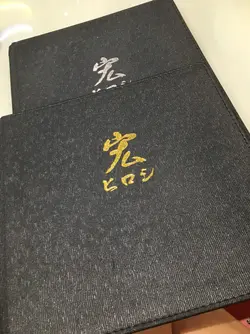 宏
ヒロシ
宏
ヒロシ